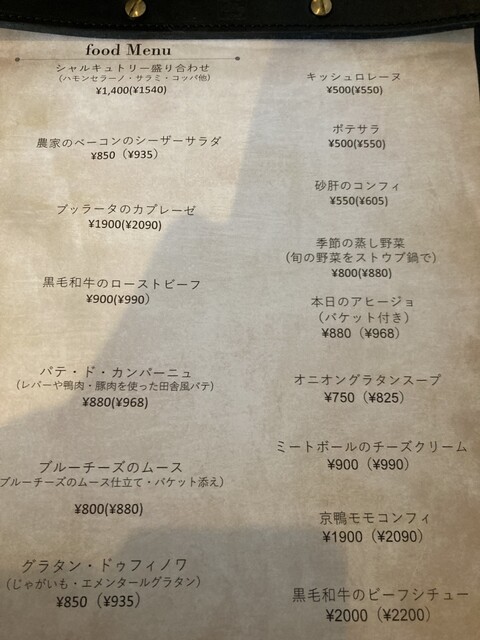 food Menu
シャルキュトリー盛り合わせ
(ハモンセラーノ・サラミ・コッパ他)
¥1,400(¥1540)
農家のベーコンのシーザーサラダ
¥850（¥935）
ブッラータのカプレーゼ
¥1900(¥2090)
黒毛和牛のローストビーフ
¥900(¥990）
パテ・ド・カンパーニュ
(レバーや鴨肉・豚肉を使った田舎風パテ)
¥880(¥968)
ブルーチーズのムース
ブルーチーズのムース仕立て・バケット添え）
¥800(¥880)
グラタン・ドゥフィノワ
(じゃがいも・エメンタールグラタン)
¥850（¥935）
キッシュロレーヌ
¥500(¥550)
ポテサラ
¥500(¥550)
砂肝のコンフィ
¥550(¥605)
季節の蒸し野菜
(旬の野菜をストウブ鍋で)
¥800(¥880)
本日のアヒージョ
（バケット付き）
¥880（¥968）
オニオングラタンスープ
¥750（¥825）
ミートボールのチーズクリーム
¥900（¥990）
京鴨モモコンフィ
¥1900（¥2090）
黒毛和牛のビーフシチュー
¥2000（¥2200）